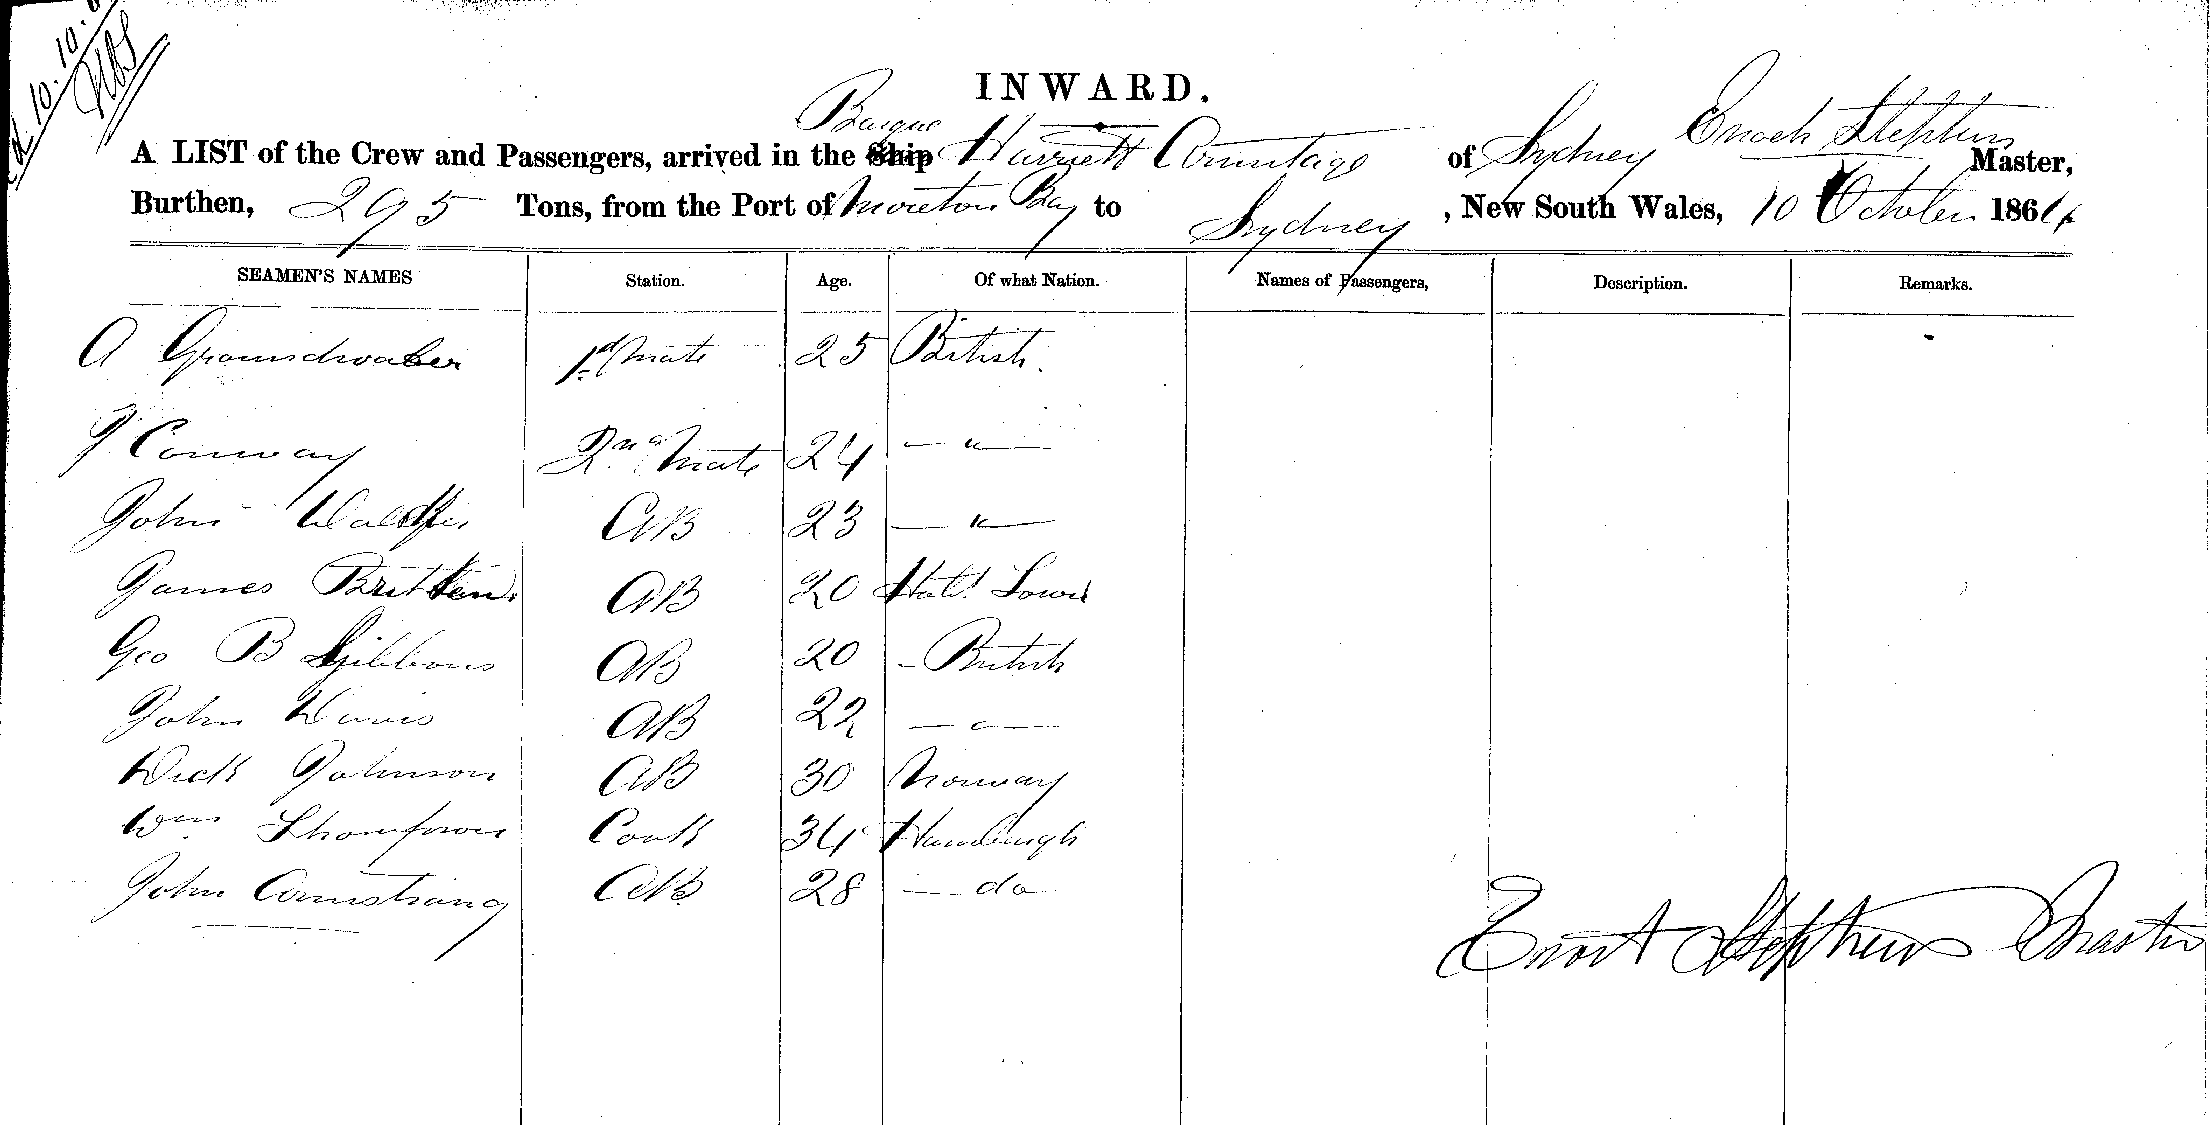 10.10.
INWARD.
A LIST of the Crew and Passengers, arrived in the Ship Barque Harriett Armitage of Sydney Enoch Stephens Master,
Burthen, 295 Tons, from the Port of Moreton Bay to Sydney, New South Wales, 10 October 1864
SEAMEN'S NAMES Station. Age. Of what Nation. Names of Passengers, Description. Remarks.
A Groundwater 1st Mate 25 British.
Conway 2nd Mate 24 — " —
John AB 23 — " —
James Britten. AB 20
Geo B Gibbons AB 20 - British
John Davis AB 22 — " —
Dick Johnson AB 30 Norway
Wm Thompson Cook 34 Hamburgh
John Armstrong AB 28 — do —
Enoch Stephens Master